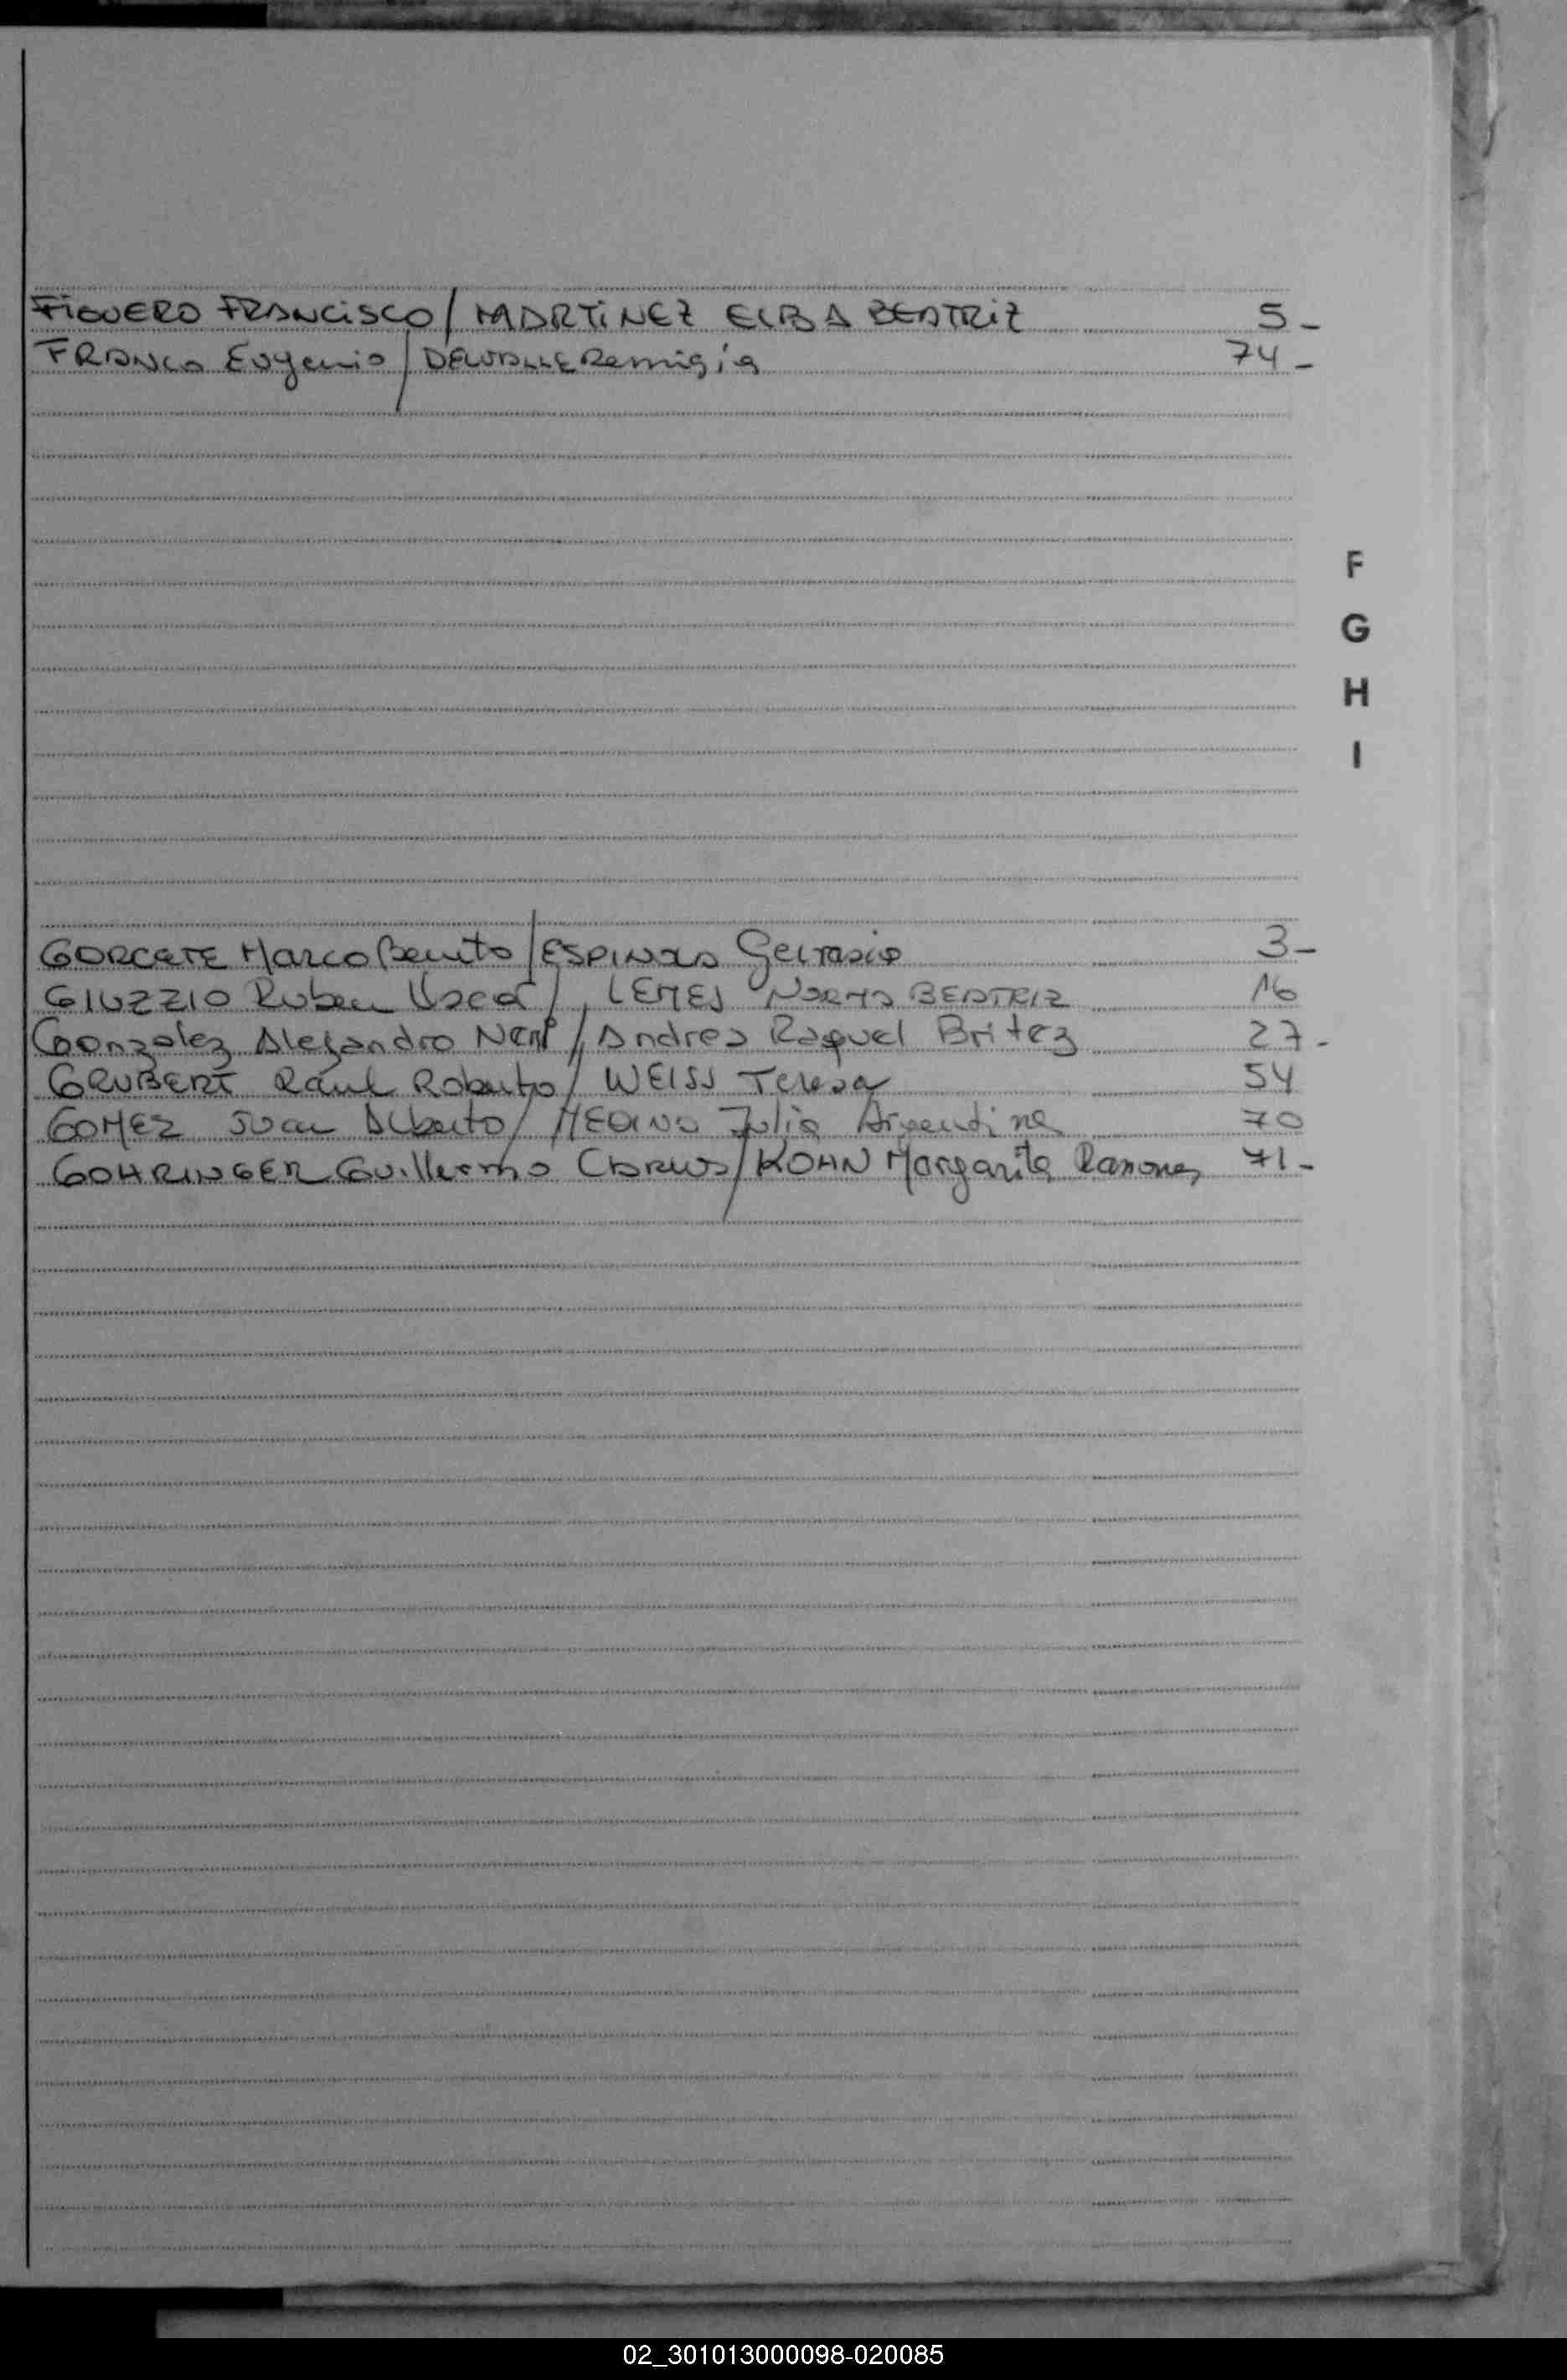 FiGUERO FRANCiSCO / MARTiNEZ ELBA BEATRiZ 5 -
FRANCO Eugenio / DELVALLE Remigia 74 -
F
G
H
I
GORCETE Marco Benito / ESPINOLA Gervasio 3 -
GIUZZIO Ruben / LEMES NORMA BEATRIZ 16
Gonzalez Alejandro / Andrea Raquel Britez 27 -
GRUBERT Raul Roberto / WEISS Teresa 54
GOMEZ Juan Alberto / MEDINA Julia Argentina 70
GOHRINGER Guillermo CARLOS / KOHN Margarita Ramona 71 -
02_301013000098-020085